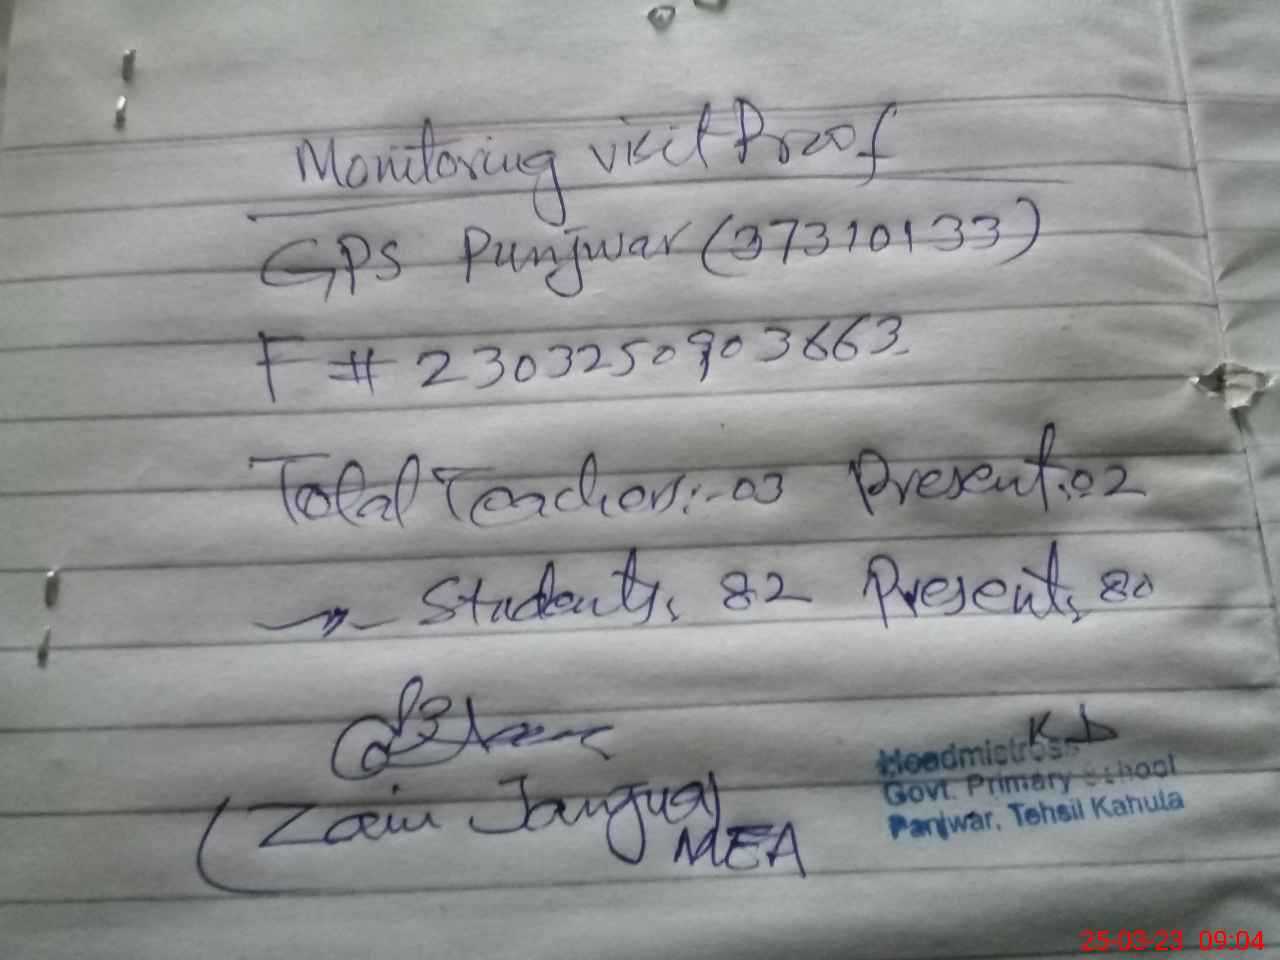 Monitoring visit Proof
GPS Punjwar (37310133)
F # 2303250903663
Total Teachers:-03 Present:02
Students, 82 Present, 80
(Zain Janjua)
MEA
K D
Headmistress
Govt. Primary School
Panjwar, Tehsil Kahuta
25-03-23 09:04